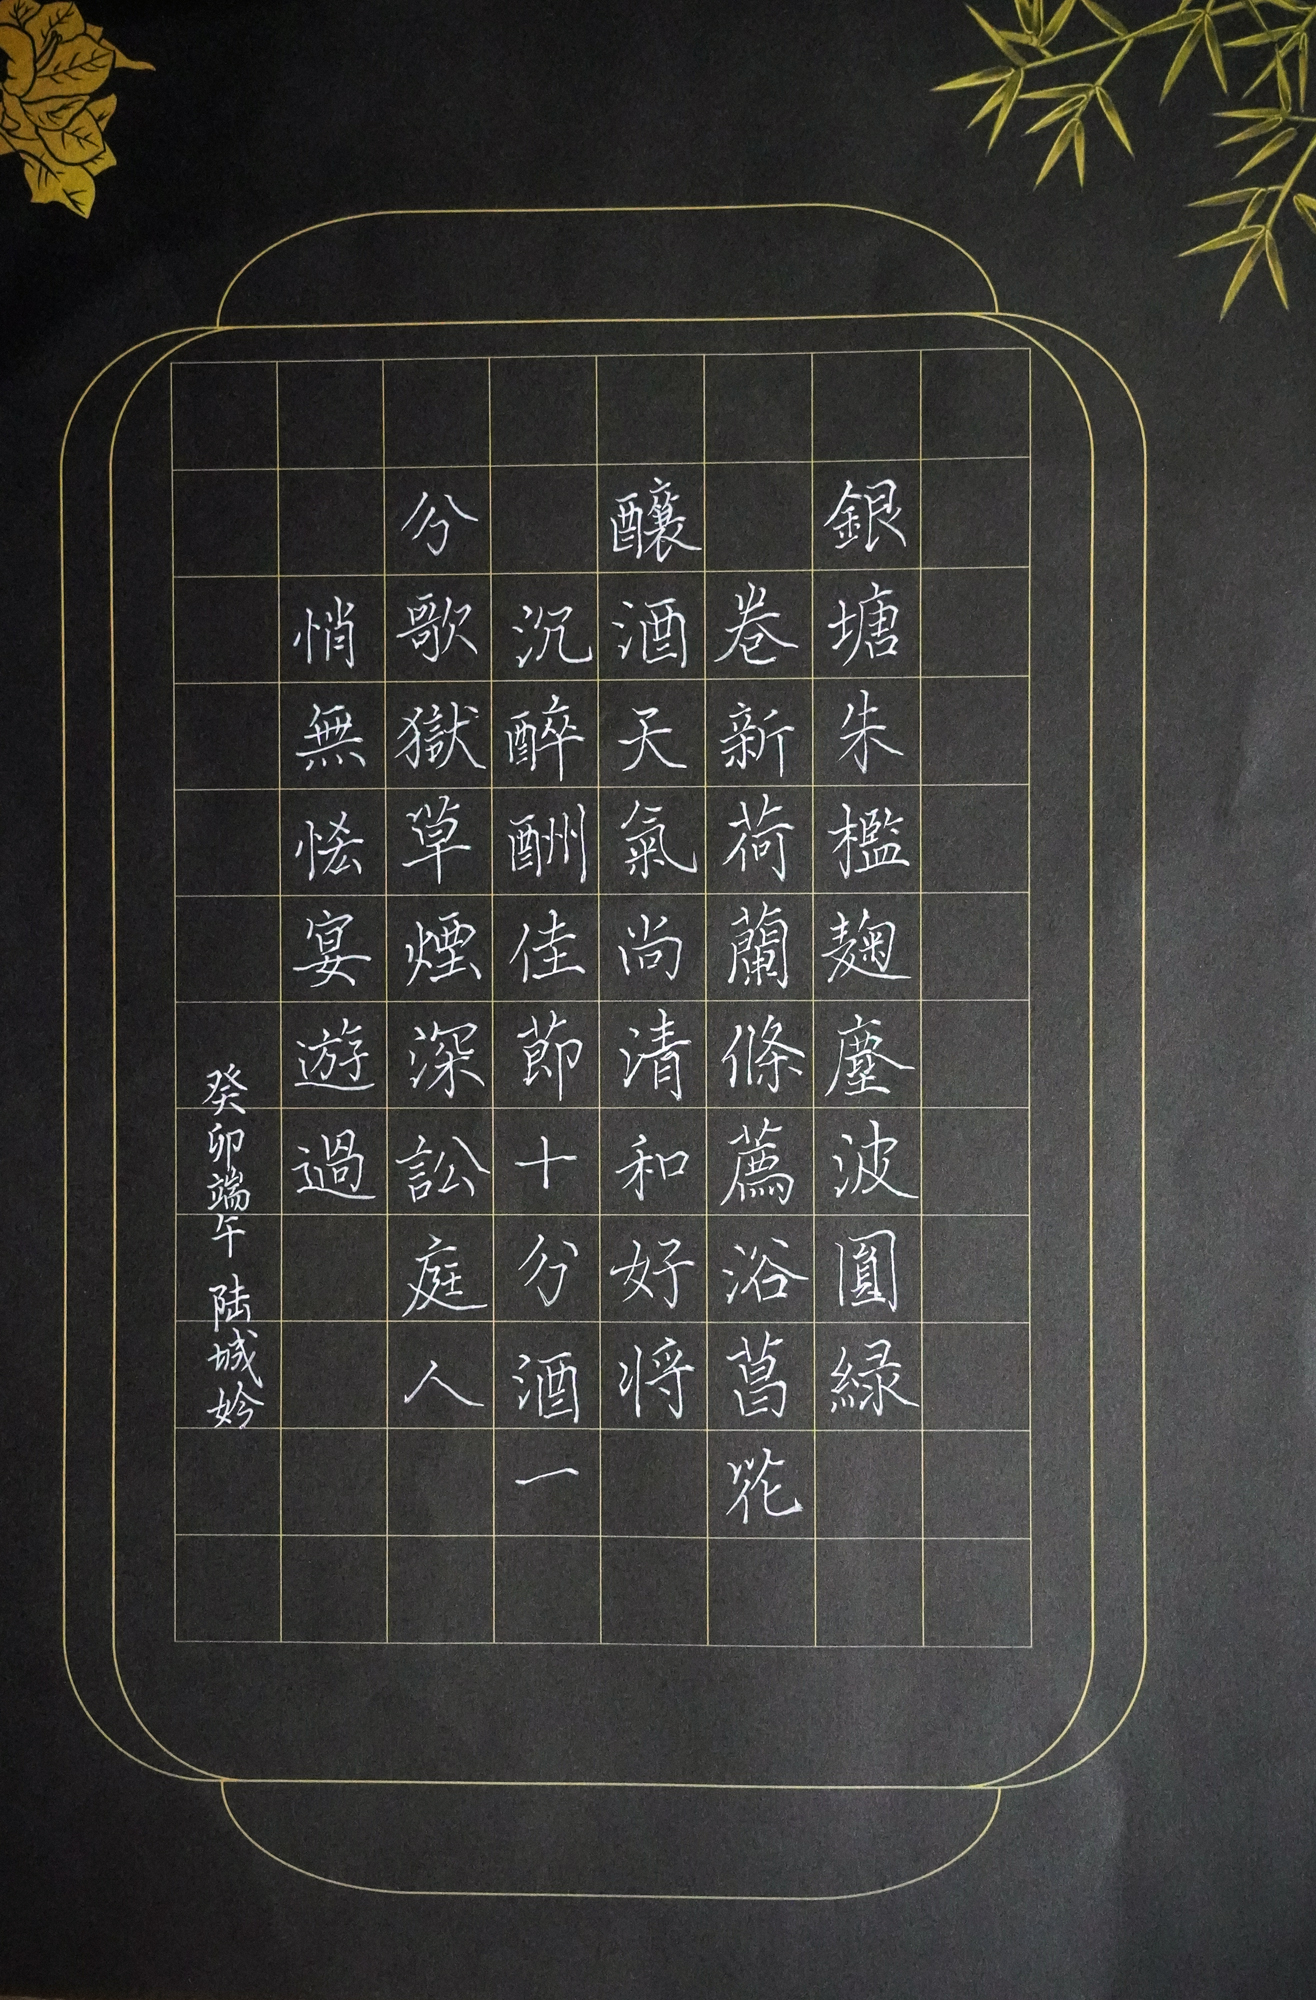 銀塘朱檻麹塵波圓緑
卷新荷蘭條薦浴菖花
釀酒天氣尚清和好将
沉醉酬佳節十分酒一
分歌獄草煙深訟庭人
悄無恡宴遊過
癸卯端午 陆城妗